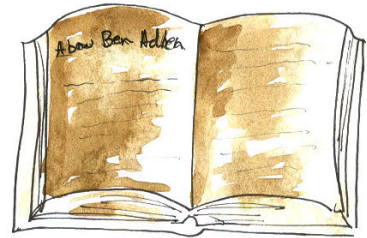 Abou Ben Adhem